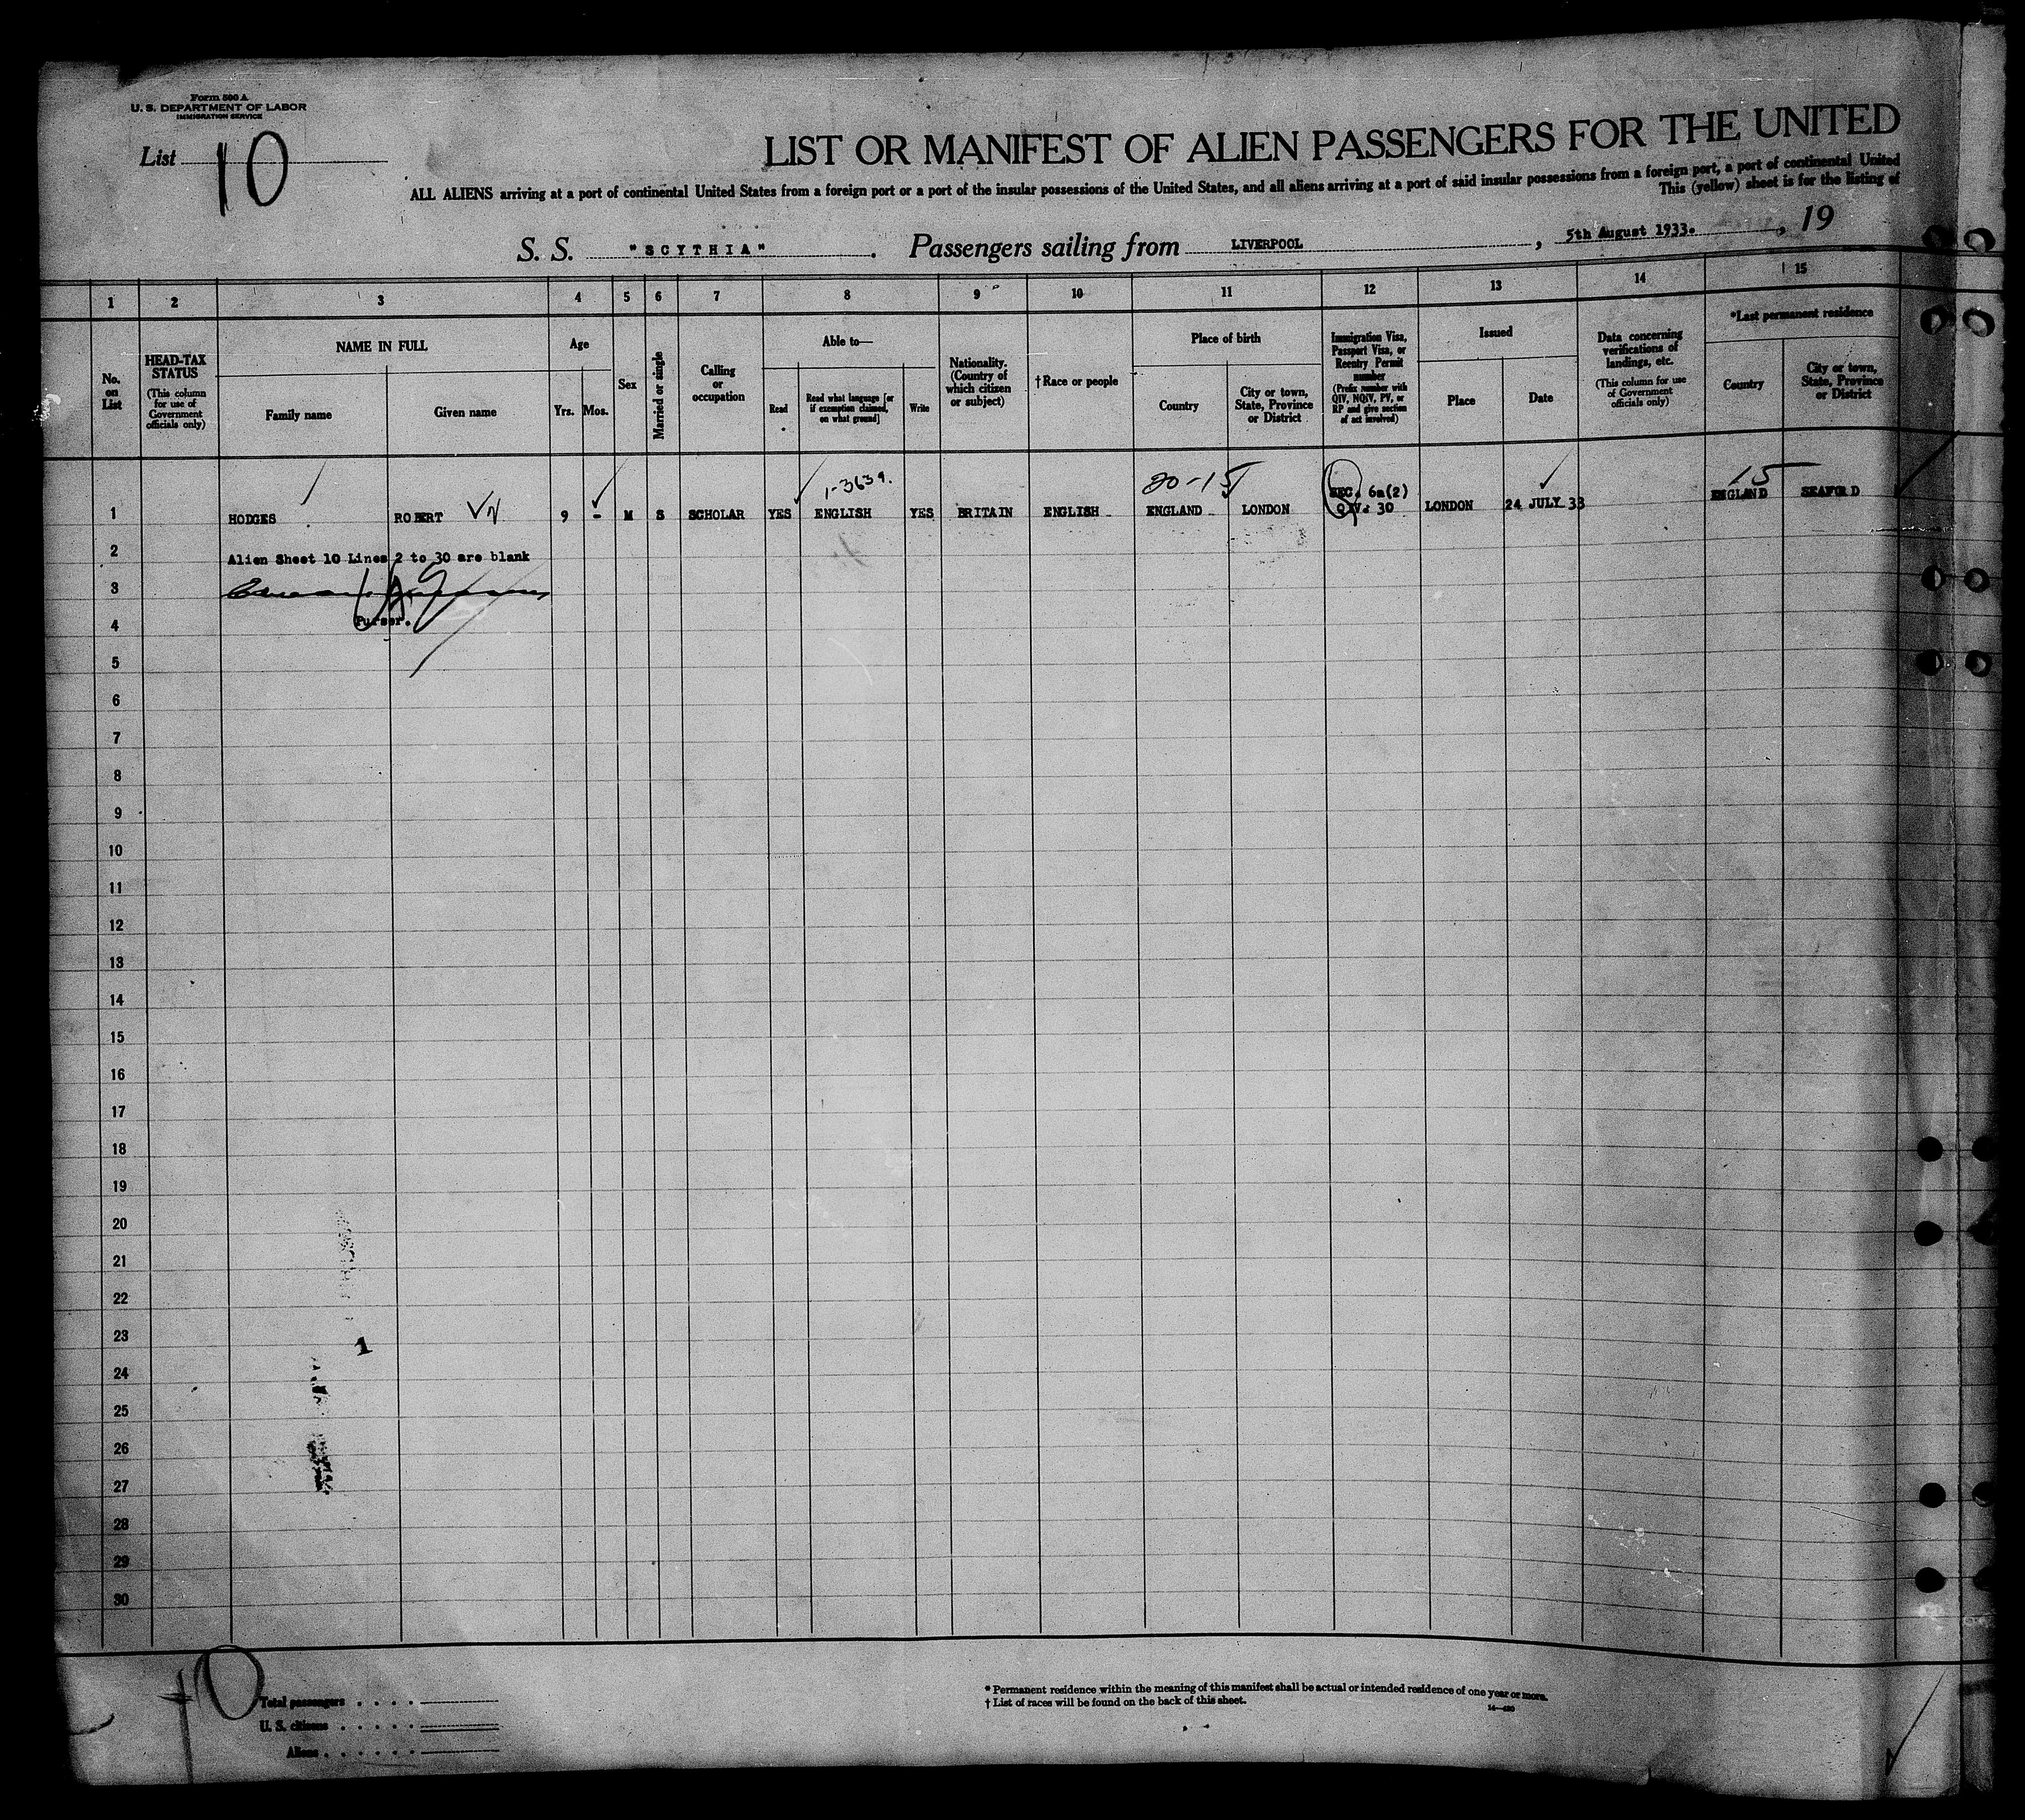 Form 500 A
U. S. DEPARTMENT OF LABOR
IMMIGRATION SERVICE
List 10
LIST OR MANIFEST OF ALIEN PASSENGERS FOR THE UNITED
ALL ALIENS arriving at a port of continental United States from a foreign port or a port of the insular possessions of the United States, and all aliens arriving at a port of said insular possessions from a foreign port, a port of continental United
This (yellow) sheet is for the listing of
S. S. "SCYTHIA". Passengers sailing from LIVERPOOL, 5th August 1933., 19
1 2 3 4 5 6 7 8 9 10 11 12 13 14 15
No. on List
HEAD-TAX STATUS
(This column for use of Government officials only)
NAME IN FULL
Family name
Given name
Age
Yrs. Mos.
Sex
Married or single
Calling or occupation
Able to—
Read
Read what language [or if exemption claimed, on what ground]
Write
Nationality. (Country of which citizen or subject)
†Race or people
Place of birth
Country
City or town, State, Province or District
Immigration Visa, Passport Visa, or Reentry Permit number
(Prefix number with QIV, NQIV, PV, or RP and give section of act involved)
Issued
Place
Date
Data concerning verifications of landings, etc.
(This column for use of Government officials only)
*Last permanent residence
Country
City or town, State, Province or District
1-3639. 20-15 15
SEC. 6a(2)
1 HODGES ROBERT 9 - M S SCHOLAR YES ENGLISH YES BRITAIN ENGLISH ENGLAND LONDON QIV. 30 LONDON 24 JULY 33 ENGLAND SEAFORD
2 Alien Sheet 10 Lines 2 to 30 are blank
3
4 Purser.
5
6
7
8
9
10
11
12
13
14
15
16
17
18
19
20
21
22
23
1
24
25
26
27
28
29
30
10
Total passengers . . . .
U. S. citizens . . . . .
Aliens . . . . . .
* Permanent residence within the meaning of this manifest shall be actual or intended residence of one year or more.
† List of races will be found on the back of this sheet.
14—430